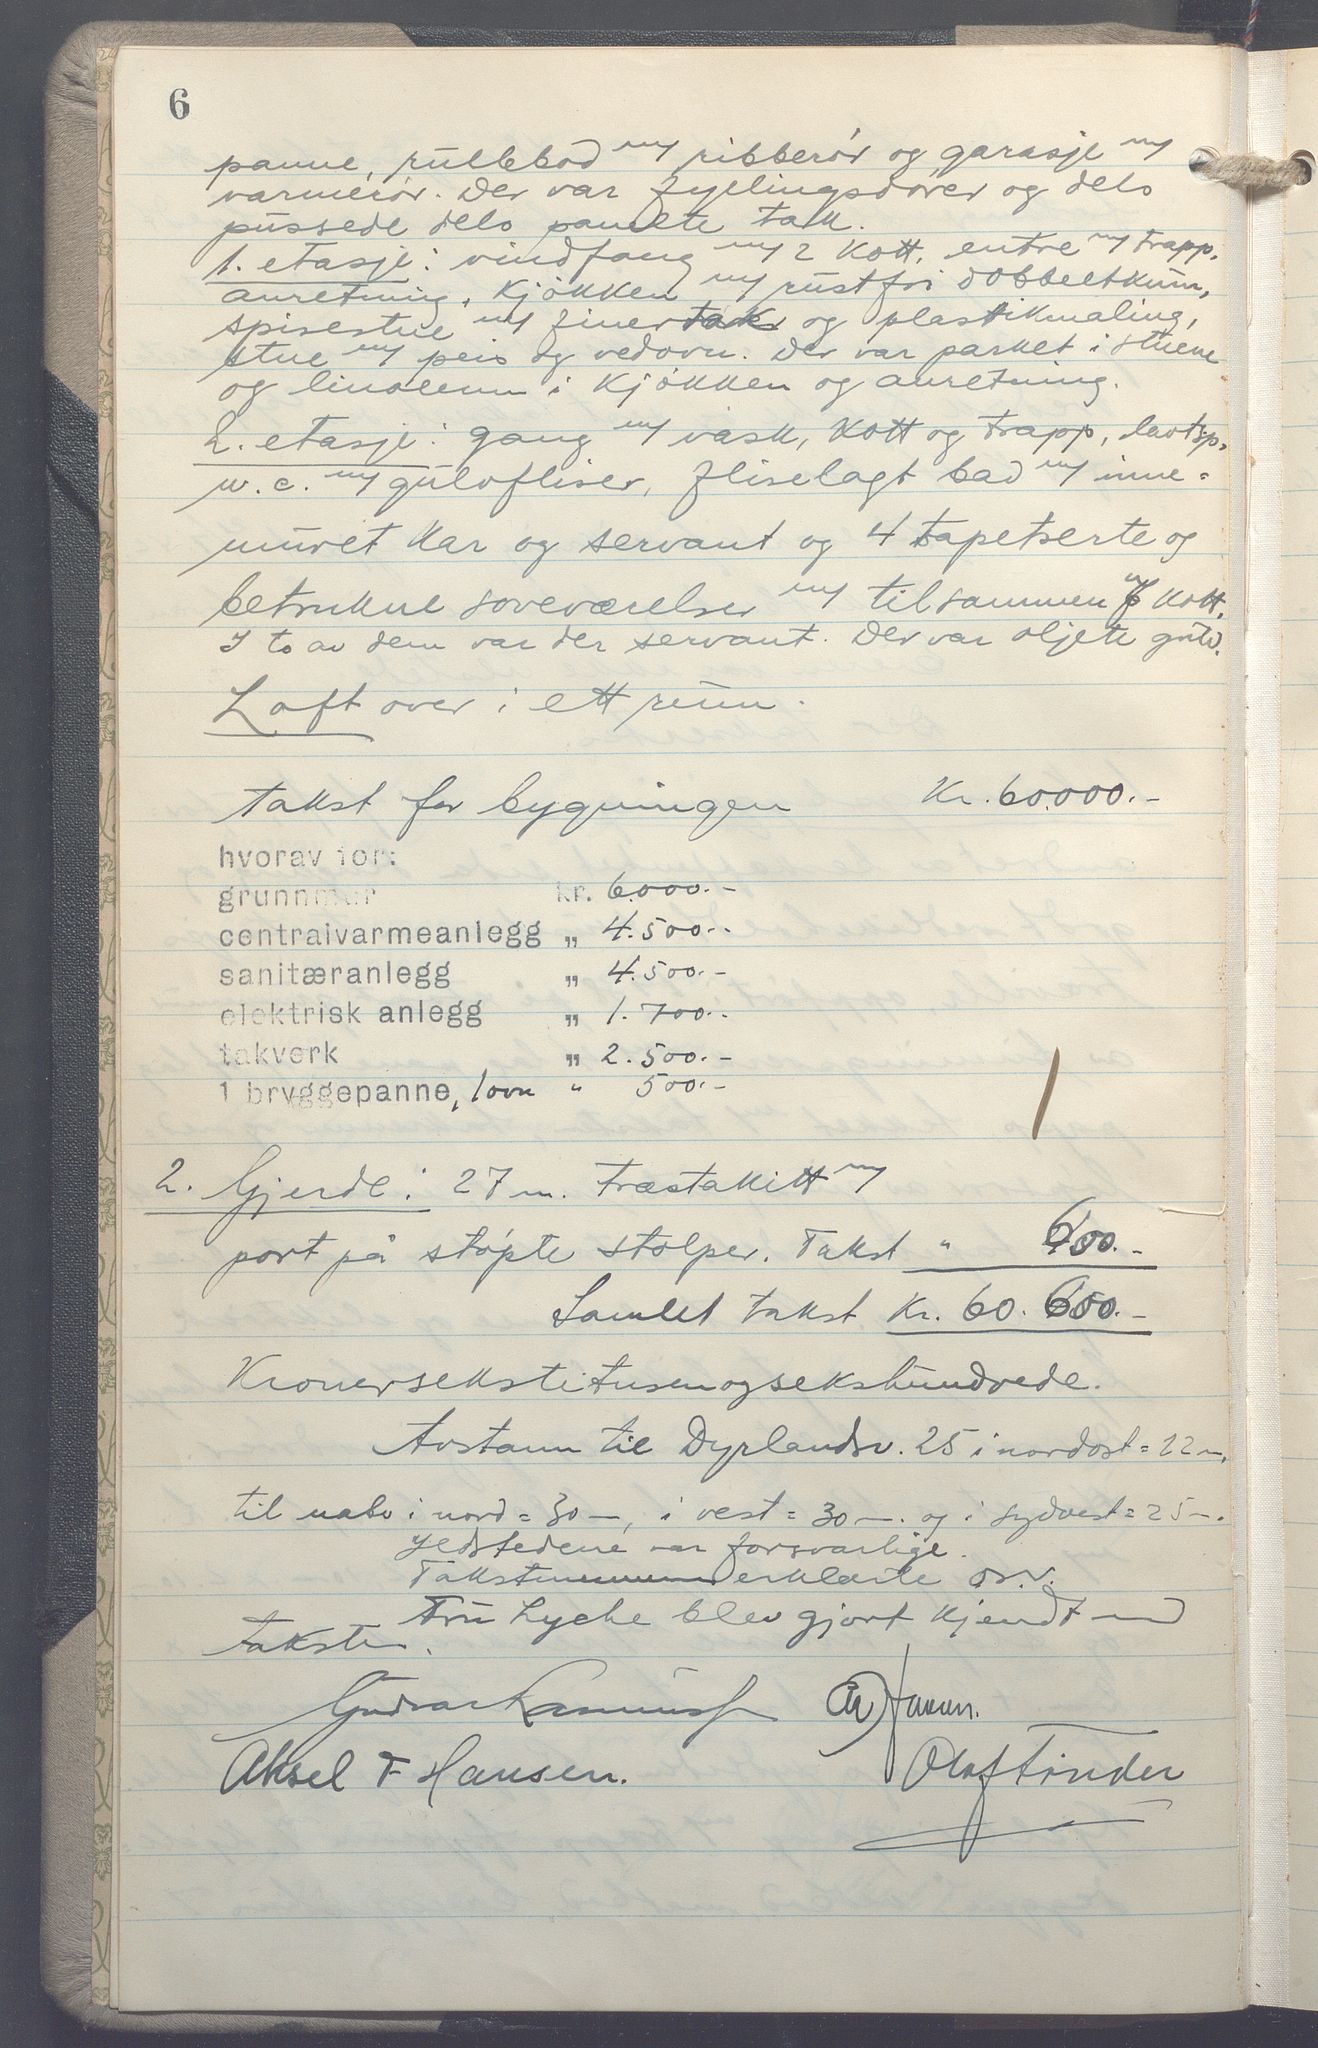 6
panne, rullebod m/ ribberör og garasje m/
varmerör. Der var fyllingsdörer og dels
pussede dels panelte tak.
1. etasje: vindfang m/ 2 kott, entre m/ trapp,
anretning, kjökken m/ rustfri dobbeltkum,
spisestue m/ finertak og plastikmaling,
stue m/ peis og vedovn. Der var parket i stuene
og linoleum i kjökken og anretning.
2. etasje: gang m/ vask, kott og trapp, lavtsp.
w.c. m/ gulvfliser, fliselagt bad m/ inne-
muret kar og servant og 4 tapetserte og
betrukne soveværelser m/ tilsammen kott.
I to av dem var der servant. Der var oljete gulv.
Loft over i ett rum.
takst for bygningen Kr. 60.000.-
hvorav for:
grunnmur kr. 6.000.-
centralvarmeanlegg „ 4.500.-
sanitæranlegg „ 4.500.-
elektrisk anlegg „ 1.700.-
takverk „ 2.500.-
1 bryggepanne, 1 ovn " 500.-
2. Gjerde: 27 m. træstakitt m/
port på støpte stolper. Takst " 600.-
Samlet takst Kr. 60.600.-
Kronersekstitusenogsekshundrede.
Avstann til Dyrlandsv. 25 i nordost = 22 m,
til nabo i nord = 30 m, i vest = 30 m. og i sydvest = 25 m.
Ildstedene var forsvarlige.
Takstmennene erklærte o.s.v.
Fru Lyche blev gjort kjendt med
taksten.
Aksel F Hansen. Olaf Tinder